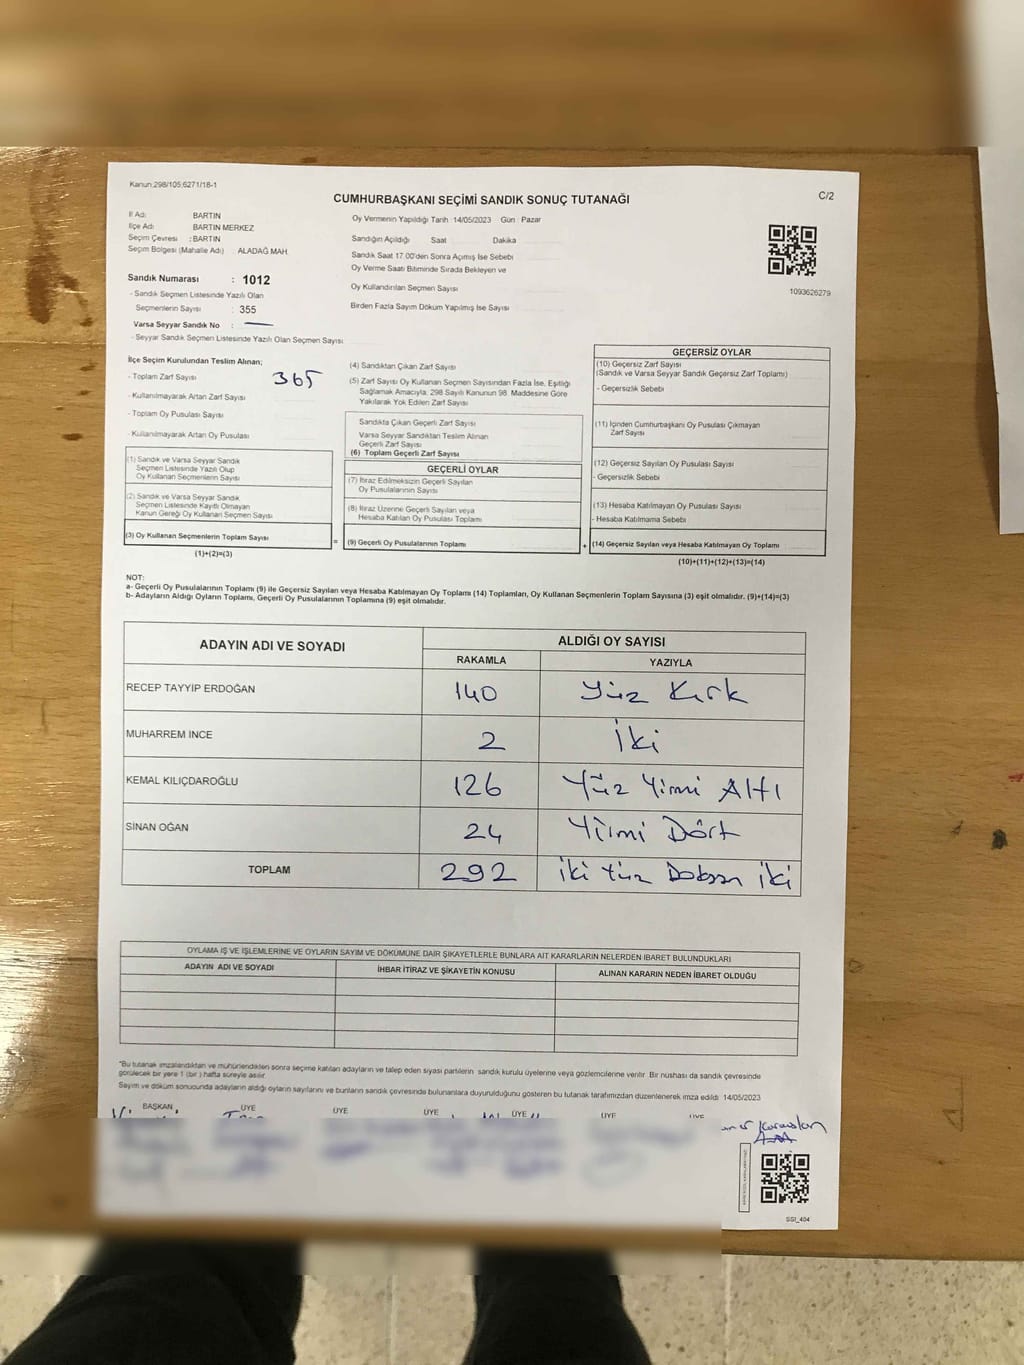 Kanun:298/105;6271/18-1
CUMHURBAŞKANI SEÇİMİ SANDIK SONUÇ TUTANAĞI
C/2
İl Adı: BARTIN
İlçe Adı: BARTIN MERKEZ
Seçim Çevresi : BARTIN
Seçim Bölgesi (Mahalle Adı) : ALADAĞ MAH.
Oy Vermenin Yapıldığı Tarih :14/05/2023 Gün : Pazar
Sandığın Açıldığı Saat Dakika
Sandık Saat 17.00'den Sonra Açımış İse Sebebi
Oy Verme Saati Bitiminde Sırada Bekleyen ve
Oy Kullandırılan Seçmen Sayısı
Birden Fazla Sayım Döküm Yapılmış İse Sayısı
1093626279
Sandık Numarası : 1012
- Sandık Seçmen Listesinde Yazılı Olan
Seçmenlerin Sayısı : 355
Varsa Seyyar Sandık No : —
- Seyyar Sandık Seçmen Listesinde Yazılı Olan Seçmen Sayısı
İlçe Seçim Kurulundan Teslim Alınan;
- Toplam Zarf Sayısı 365
- Kullanılmayarak Artan Zarf Sayısı
- Toplam Oy Pusulası Sayısı
- Kullanılmayarak Artan Oy Pusulası
(1) Sandık ve Varsa Seyyar Sandık
Seçmen Listesinde Yazılı Olup
Oy Kullanan Seçmenlerin Sayısı
(2) Sandık ve Varsa Seyyar Sandık
Seçmen Listesinde Kayıtlı Olmayan
Kanun Gereği Oy Kullanan Seçmen Sayısı
(3) Oy Kullanan Seçmenlerin Toplam Sayısı
(1)+(2)=(3)
(4) Sandıktan Çıkan Zarf Sayısı
(5) Zarf Sayısı Oy Kullanan Seçmen Sayısından Fazla İse, Eşitliği
Sağlamak Amacıyla; 298 Sayılı Kanunun 98. Maddesine Göre
Yakılarak Yok Edilen Zarf Sayısı
Sandıkta Çıkan Geçerli Zarf Sayısı
Varsa Seyyar Sandıktan Teslim Alınan
Geçerli Zarf Sayısı
(6) Toplam Geçerli Zarf Sayısı
GEÇERLİ OYLAR
(7) İtiraz Edilmeksizin Geçerli Sayılan
Oy Pusulalarının Sayısı
(8) İtiraz Üzerine Geçerli Sayılan veya
Hesaba Katılan Oy Pusulası Toplamı
= (9) Geçerli Oy Pusulalarının Toplamı
GEÇERSİZ OYLAR
(10) Geçersiz Zarf Sayısı
(Sandık ve Varsa Seyyar Sandık Geçersiz Zarf Toplamı)
- Geçersizlik Sebebi
(11) İçinden Cumhurbaşkanı Oy Pusulası Çıkmayan
Zarf Sayısı
(12) Geçersiz Sayılan Oy Pusulası Sayısı
- Geçersizlik Sebebi
(13) Hesaba Katılmayan Oy Pusulası Sayısı
- Hesaba Katılmama Sebebi
+ (14) Geçersiz Sayılan veya Hesaba Katılmayan Oy Toplamı
(10)+(11)+(12)+(13)=(14)
NOT:
a- Geçerli Oy Pusulalarının Toplamı (9) ile Geçersiz Sayılan veya Hesaba Katılmayan Oy Toplamı (14) Toplamları, Oy Kullanan Seçmenlerin Toplam Sayısına (3) eşit olmalıdır. (9)+(14)=(3)
b- Adayların Aldığı Oyların Toplamı, Geçerli Oy Pusulalarının Toplamına (9) eşit olmalıdır.
ADAYIN ADI VE SOYADI ALDIĞI OY SAYISI
RAKAMLA YAZIYLA
RECEP TAYYİP ERDOĞAN 140 Yüz Kırk
MUHARREM İNCE 2 İki
KEMAL KILIÇDAROĞLU 126 Yüz Yirmi Altı
SİNAN OĞAN 24 Yirmi Dört
TOPLAM 292 İki Yüz Doksan İki
OYLAMA İŞ VE İŞLEMLERİNE VE OYLARIN SAYIM VE DÖKÜMÜNE DAİR ŞİKAYETLERLE BUNLARA AİT KARARLARIN NELERDEN İBARET BULUNDUKLARI
ADAYIN ADI VE SOYADI İHBAR İTİRAZ VE ŞİKAYETİN KONUSU ALINAN KARARIN NEDEN İBARET OLDUĞU
*Bu tutanak imzalandıktan ve mühürlendikten sonra seçime katılan adayların ve talep eden siyasi partilerin sandık kurulu üyelerine veya gözlemcilerine verilir. Bir nüshası da sandık çevresinde
görülecek bir yere 1 (bir) hafta süreyle asılır.
Sayım ve döküm sonucunda adayların aldığı oyların sayılarını ve bunların sandık çevresinde bulunanlara duyurulduğunu gösteren bu tutanak tarafımızdan düzenlenerek imza edildi. 14/05/2023
BAŞKAN ÜYE ÜYE ÜYE ÜYE ÜYE ÜYE
SSI_404